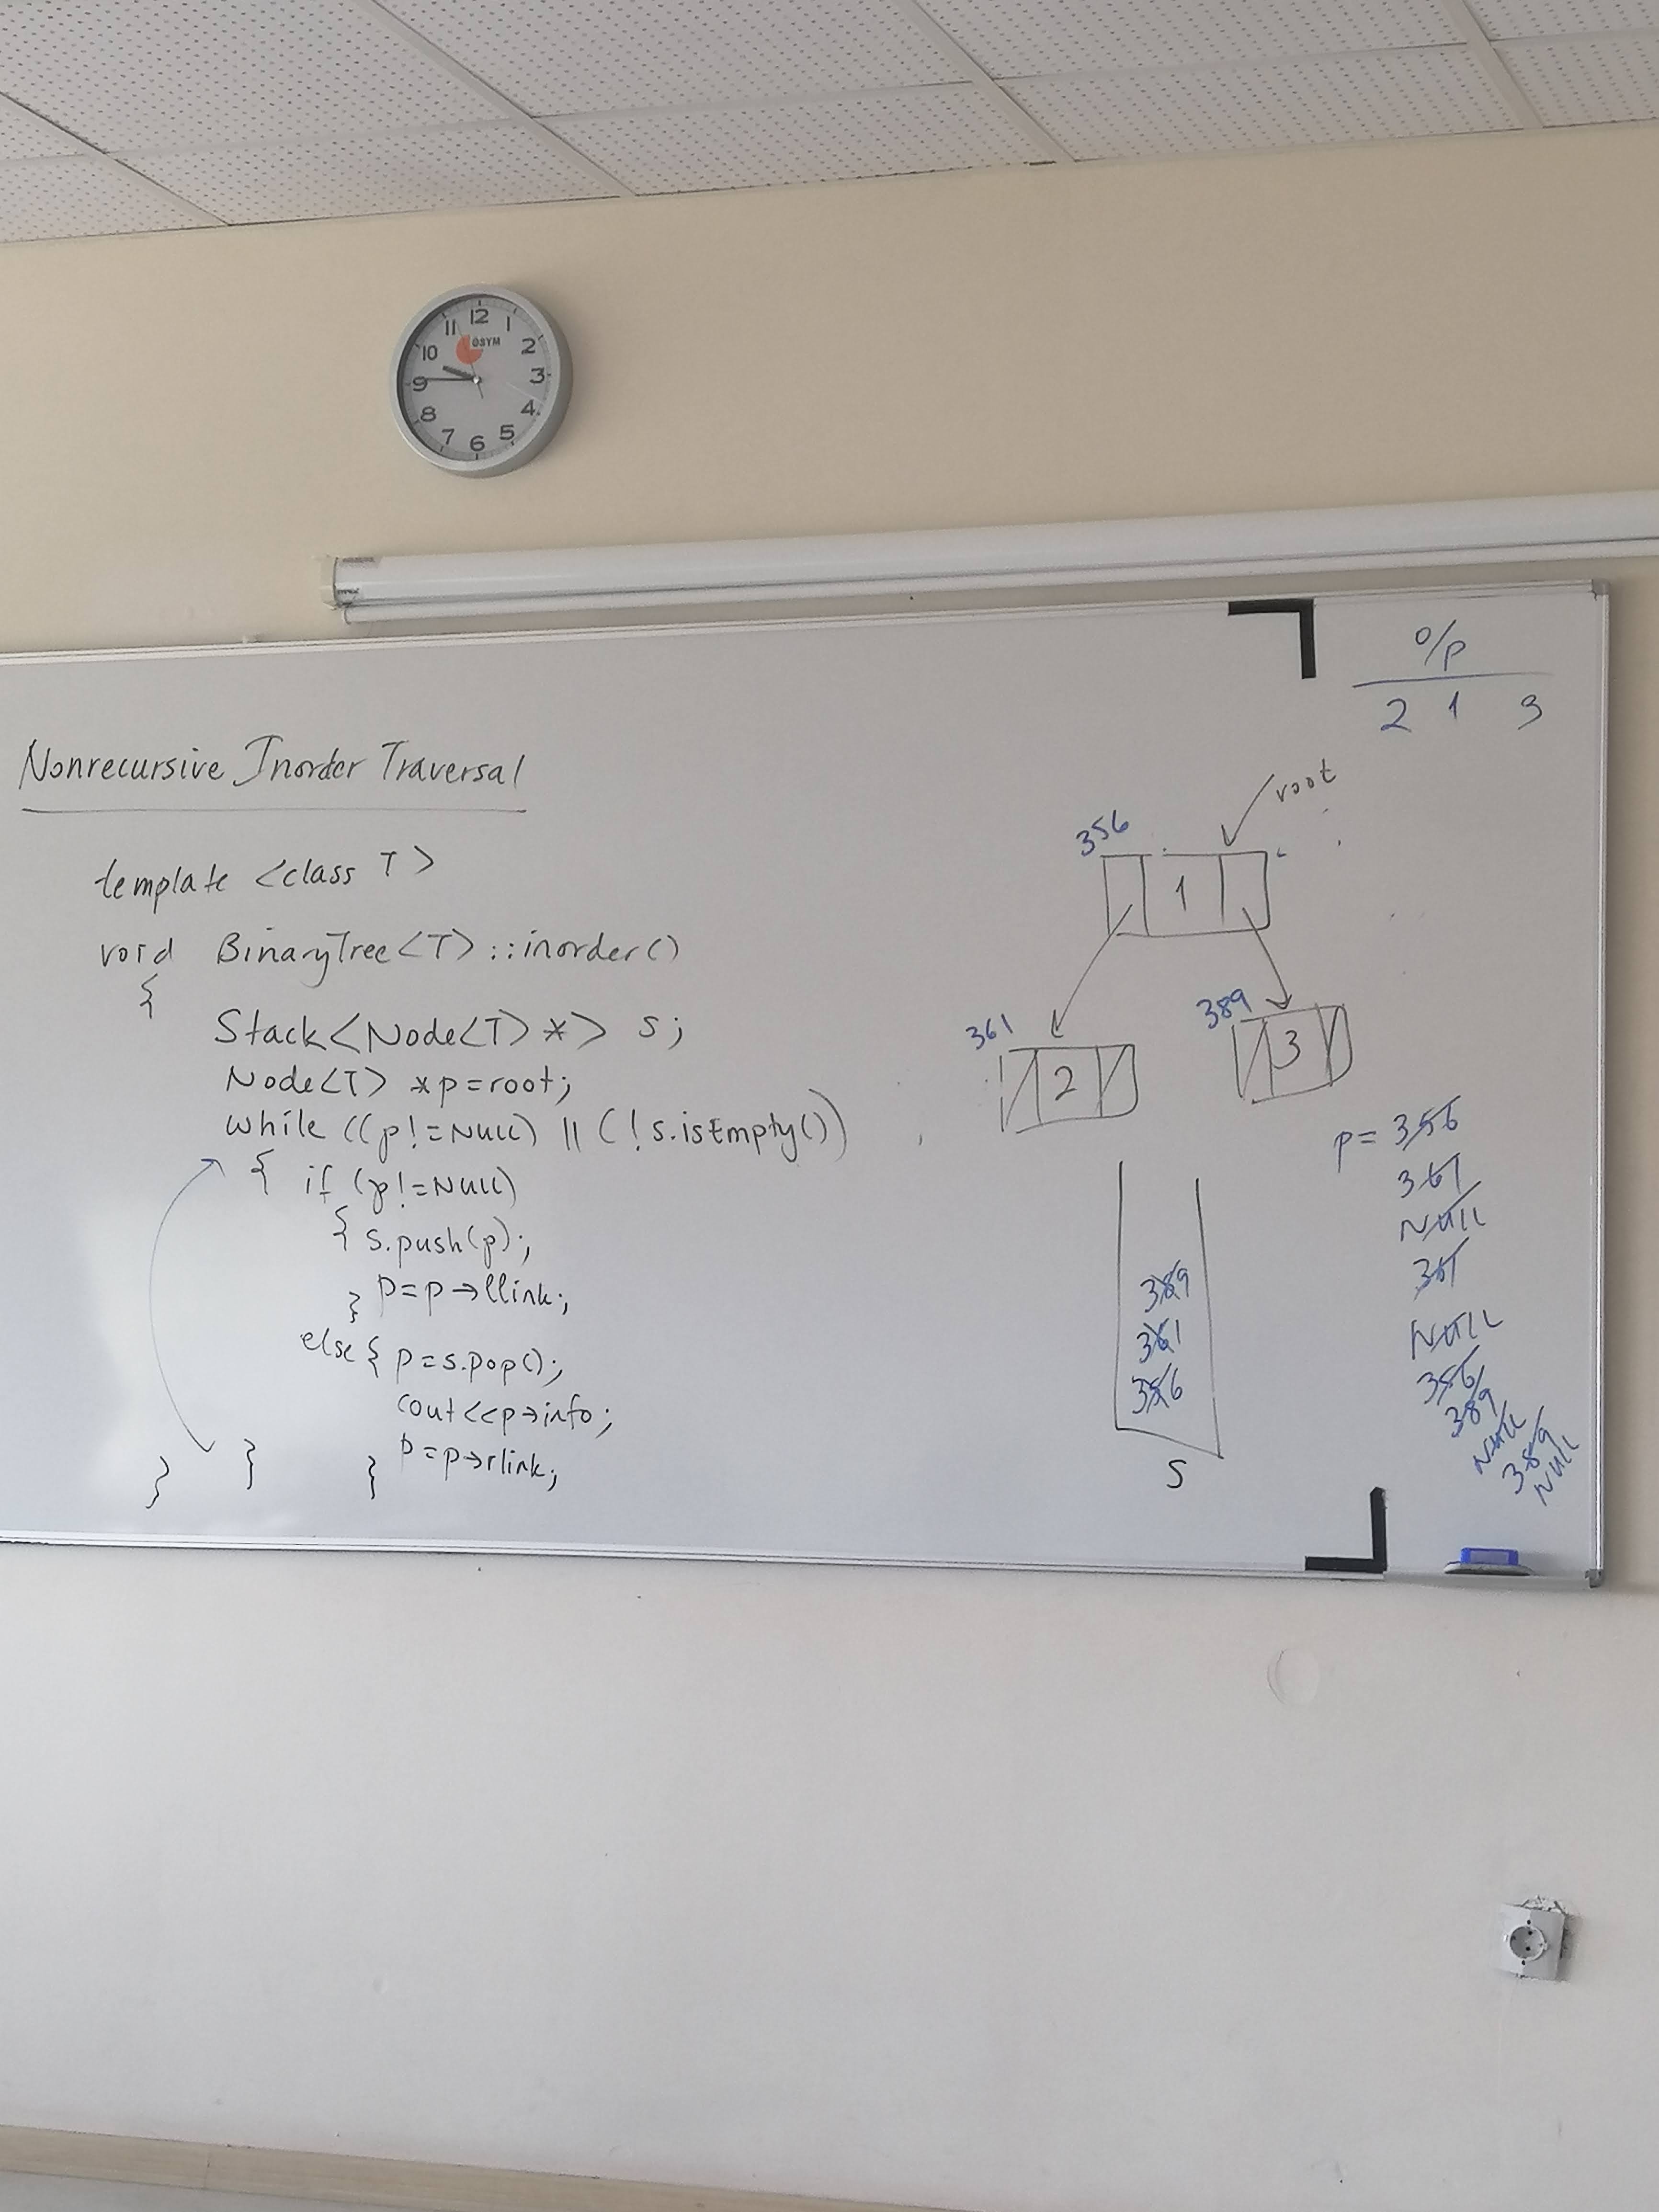 12
11 1
ÖSYM
10 2
9 3
8 4
7 5
6
o/p
2 1 3
Nonrecursive Inorder Traversal
template <class T>
void BinaryTree<T>::inorder()
{
Stack<Node<T>*> s;
Node<T> *p=root;
while ((p!=NULL) || (!s.isEmpty())
{ if (p!=NULL)
{ s.push(p);
} p=p→llink;
else { p=s.pop();
cout<<p→info;
p=p→rlink;
} } }
root
356
1
361 389
2 3
389
361
356
S
p= 356
361
NULL
361
NULL
356
389
NULL
389
NULL